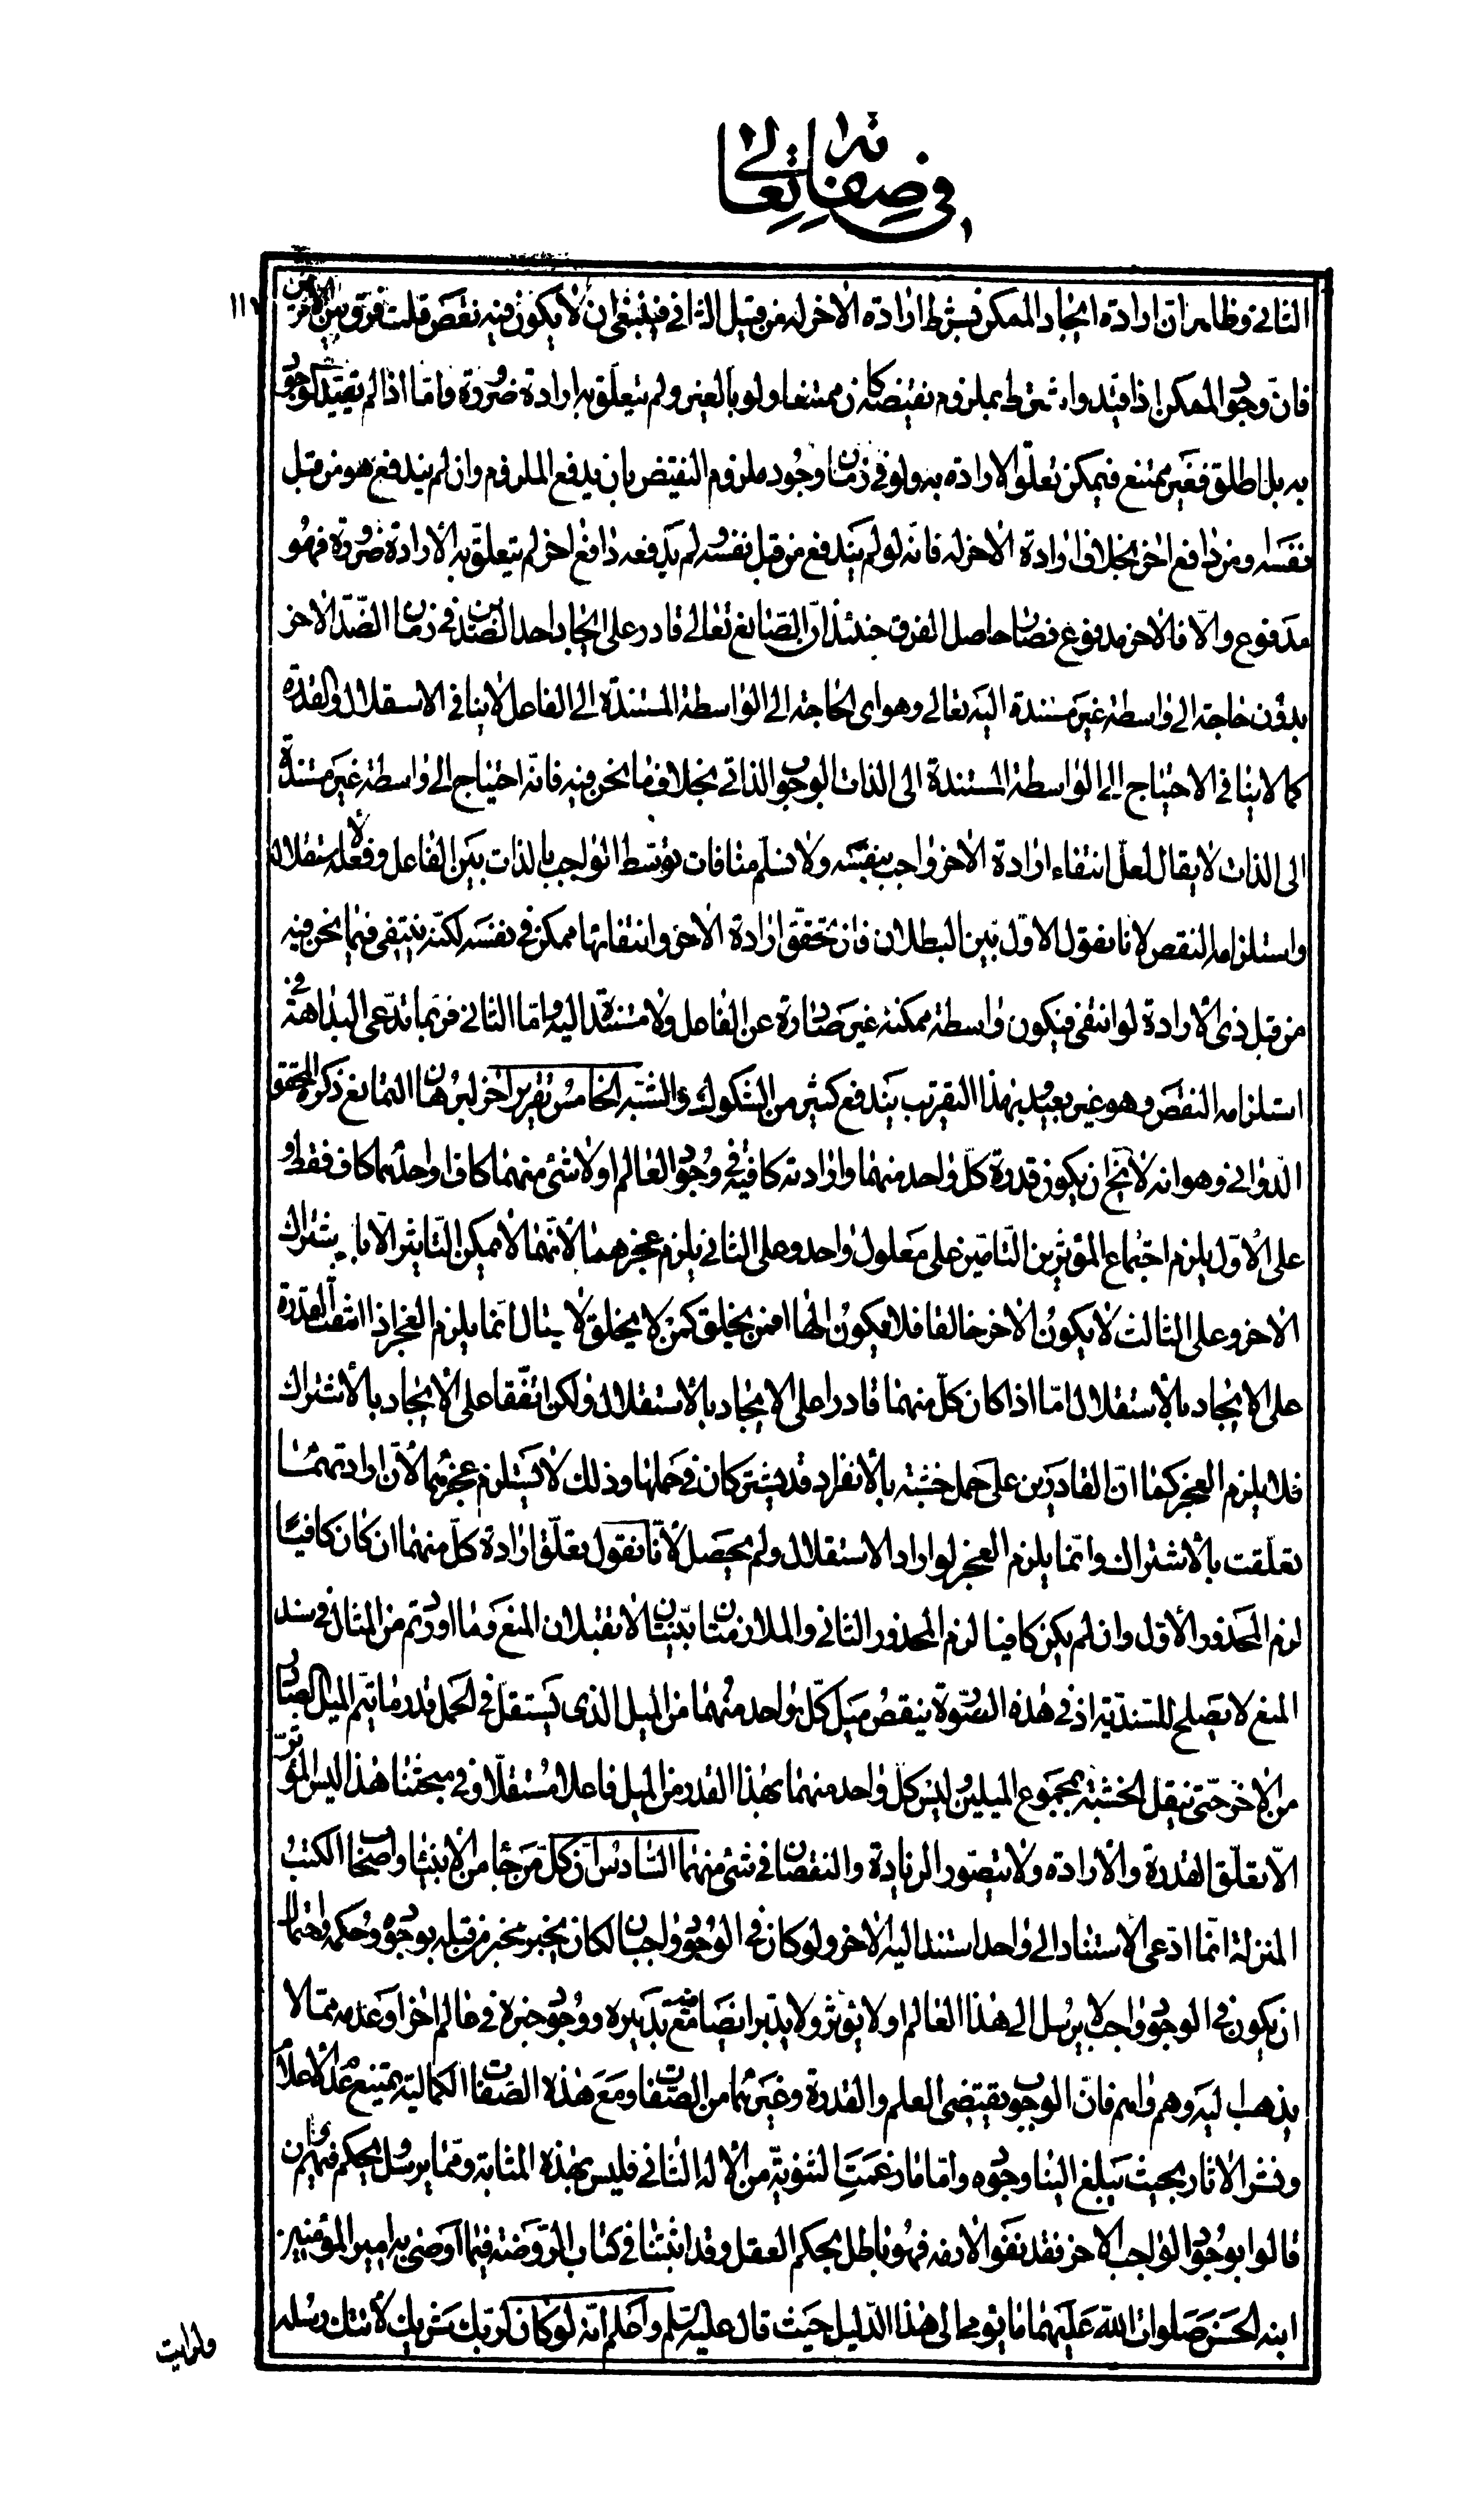 في صفاته تعالى
١١٧
الثاني وظاهر ان ارادة ايجاد الممكن بشرط ارادة الاخر له من قبيل الثاني فينبغى ان لا يكون فيه نقص قلت فرق بين الامرين
فان وجود الممكن اذا قيد واشترط بملزوم نقيضه كان ممتنعا ولو بالغير ولم يتعلق به ارادة ضرورة واما اذا لم يقيد الوجود
به بل اطلق فغير ممتنع فيمكن تعلق الارادة به ولو في زمان وجود ملزوم النقيض بان يدفع الملزوم وان لم يندفع هو من قبل
نفسه او من دافع اخر بخلاف ارادة الاخر له فانه لو لم يندفع من قبل نفسه لم يدفعه دافع اخر لم يتعلق به الارادة ضرورة فهو
مدفوع والا فالاخر مدفوع فصار حاصل الفرق حينئذ ان الصانع تعالى قادر على ايجاد احد الضدين في زمان الضد الاخر
بدون حاجة الى واسطة غير مستندة اليه تعالى وهو اى الحاجة الى الواسطة المستندة الى الفاعل لا ينافي الاستقلال والقدرة
كما لا ينافي الاحتياج الى الواسطة المستندة الى الذات الوجوب الذاتي بخلاف ما نحن فيه فانه احتياج الى واسطة غير مستندة
الى الذات لا يقال لعل انتفاء ارادة الاخر واجب بنفسه ولا نسلم منافات توسط الواجب بالذات بين الفاعل وفعله لاستقلاله
واستلزامه النقص لانا نقول الاول بين البطلان فان تحقق ارادة الاخر وانتفائها ممكن في نفسه لكنه ينتفى فيما نحن فيه
من قبل ذى الارادة لو انتفى فيكون واسطة ممكنة غير صادرة عن الفاعل ولا مستندة اليه واما الثاني فربما تدعى البداهة في
استلزامه النقص وهو غير بعيد وبهذا التقريب يندفع كثير من الشكوك والشبه الخامس تقرير اخر لبرهان التمانع ذكره المحقق
الدواني وهو انه لا يخ ان يكون قدرة كل واحد منهما وارادته كافية في وجود العالم او لا شئ منهما كاف او احدهما كاف فقط و
على الاول يلزم اجتماع المؤثرين التامين على معلول واحد وعلى الثاني يلزم عجزهما لانهما لا يمكن التأثير الا باشتراك
الاخر وعلى الثالث لا يكون الاخر خالقا فلا يكون الها افمن يخلق كمن لا يخلق لا يقال انما يلزم العجز اذا انتفت القدرة
على الايجاد بالاستقلال اما اذا كان كل منهما قادرا على الايجاد بالاستقلال ولكن اتفقا على الايجاد بالاشتراك
فلا يلزم العجز كما ان القادرين على حمل خشبة بالانفراد قد يشتركان في حملها وذلك لا يستلزم عجزهما لان ارادتهما
تعلقت بالاشتراك وانما يلزم العجز لو اراد الاستقلال ولم يحصل لانا نقول تعلق ارادة كل منهما ان كان كافيا
لزم المحذور الاول وان لم يكن كافيا لزم المحذور الثاني والملازمتان بينتان لا تقبلان المنع وما اوردتم من المثال في سند
المنع لا يصلح للسندية اذ في هذه الصورة ينقص ميل كل واحد منهما من الميل الذي يستقل في الحمل قدر ما يتم الميل الصادر
من الاخر حتى تنقل الخشبة بمجموع الميلين وليس كل واحد منهما بهذا القدر من الميل فاعلا مستقلا وفي مبحثنا هذا ليس المؤثر
الا تعلق القدرة والارادة ولا يتصور الزيادة والنقصان في شئ منهما السادس ان كل من جاء من الانبياء واصحاب الكتب
المنزلة انما ادعى الاستناد الى واحد استند اليه الاخر ولو كان في الوجود واجبان لكان يخبر مخبر من قبله بوجوده وحكمه واحتمال
ان يكون في الوجود واجب لا يرسل الى هذا العالم او لا يؤثر ولا يدبر ايضا مع تدبيره ووجود خبره في عالم اخر او عدمه مما لا
يذهب اليه وهم واهم فان الوجوب يقتضى العلم والقدرة وغيرهما من الصفات ومع هذه الصفات الكمالية يمتنع عدم الاعلام
ونشر الاثار بحيث يبلغ الينا وجوده واما ما زعمت الثنوية من الاله الثاني فليس بهذه المثابة ومما يرسل ويحكم فيهم وان
قالوا بوجود الواجب الاخر فقد نفوا لازمه فهو باطل بحكم العقل وقد اثبتنا في كتاب الروضة فيما اوصى به امير المؤمنين
ابنه الحسن صلوات الله عليهما ما يؤمى الى هذا الدليل حيث قال عليه السلم واعلم انه لو كان لربك شريك لاتتك رسله
ولرايت